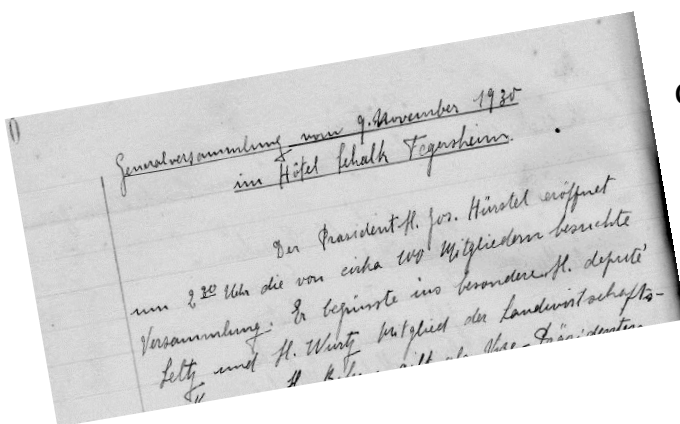 Generalversammlung vom 9. November 1930
im Hôtel Schalk Fegersheim.
Der Präsident H. Jos. Hürstel eröffnet
um 2 30 Uhr die von cirka 100 Mitgliedern besuchte
Versammlung. Er begrüsste ins besondere H. deputé
Seltz und H. Wurtz Mitglied der Landwirtschafts-
H. als Vize-Präsidenten